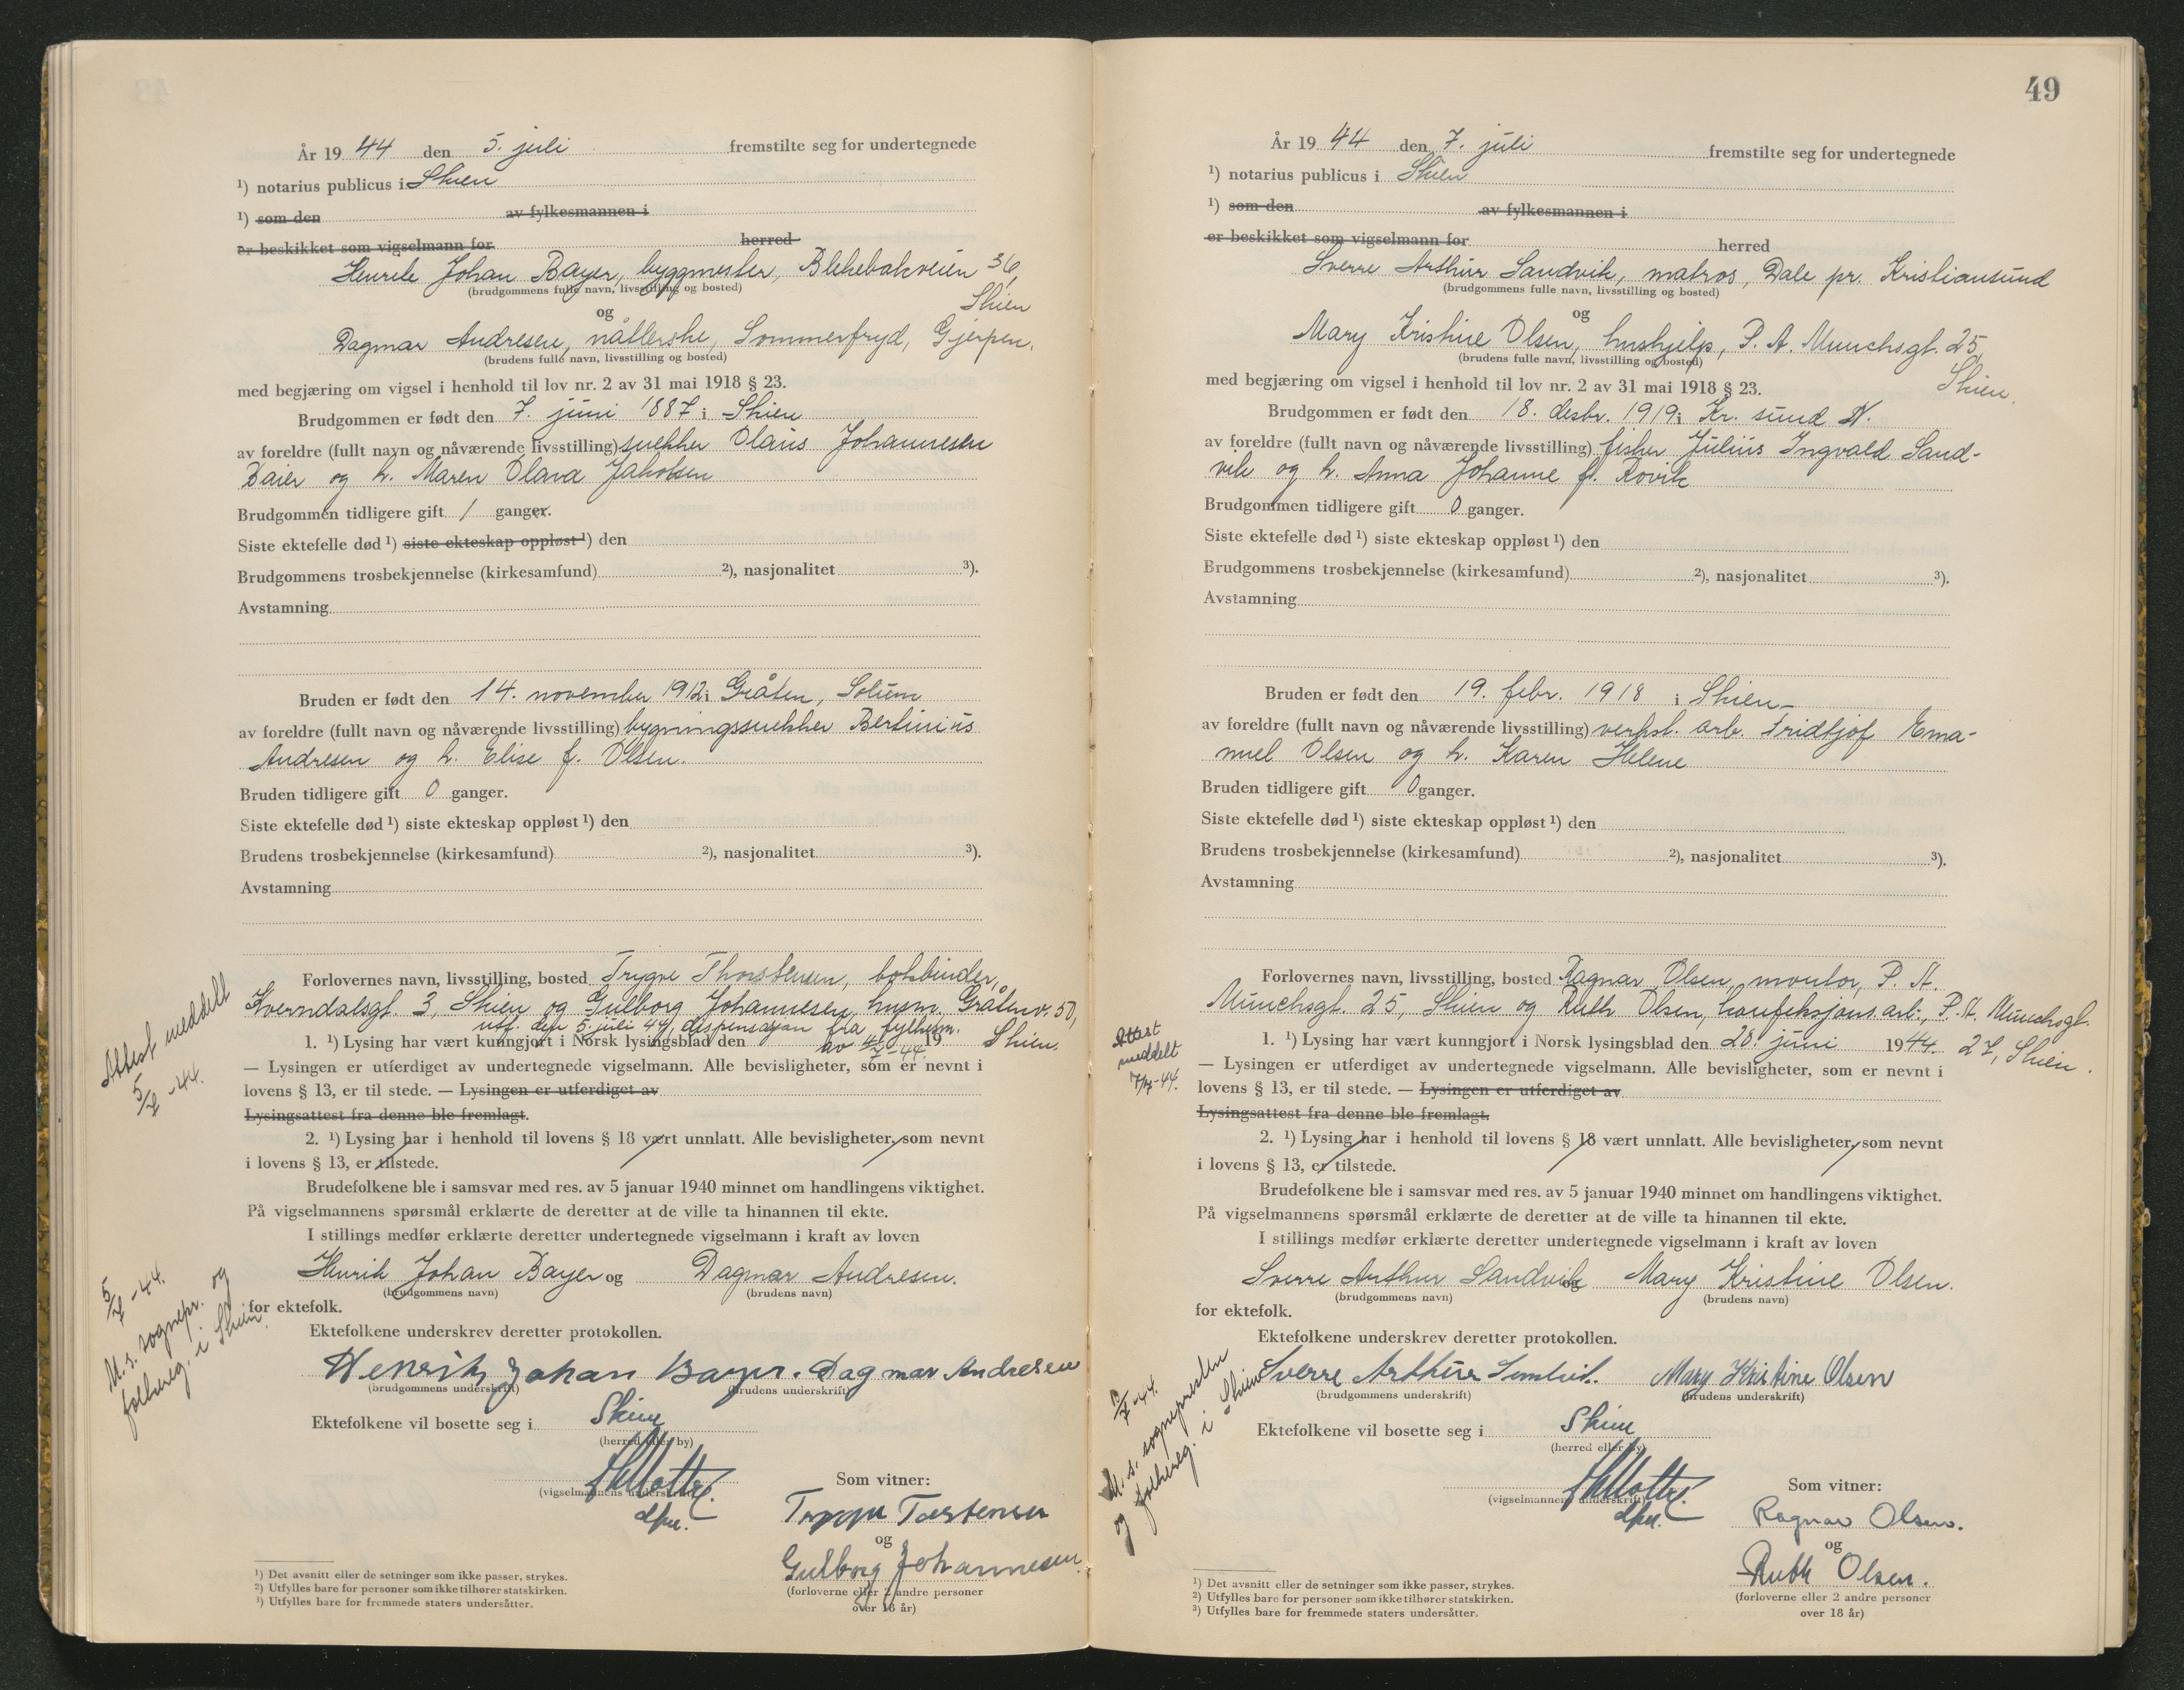 År 19 44 den 5. juli fremstilte seg for undertegnede
¹) notarius publicus i Skien
¹) som den av fylkesmannen i
er beskikket som vigselmann for herred
Henrik Johan Bayer, byggmester, Blekebakveien 36,
(brudgommens fulle navn, livsstilling og bosted)
Skien
og
Dagmar Andresen, nåtlerske, Sommerfryd, Gjerpen.
(brudens fulle navn, livsstilling og bosted)
med begjæring om vigsel i henhold til lov nr. 2 av 31 mai 1918 § 23.
Brudgommen er født den 7. juni 1887 i Skien
av foreldre (fullt navn og nåværende livsstilling) snekker Olaus Johannesen
Baier og h. Maren Olava Jakobsen
Brudgommen tidligere gift 1 ganger.
Siste ektefelle død ¹) siste ekteskap oppløst ¹) den
Brudgommens trosbekjennelse (kirkesamfund) ²), nasjonalitet ³).
Avstamning
Bruden er født den 14. november 1912 i Gråten, Solum
av foreldre (fullt navn og nåværende livsstilling) bygningssnekker Bertinius
Andresen og h. Elise f. Olsen.
Bruden tidligere gift 0 ganger.
Siste ektefelle død ¹) siste ekteskap oppløst ¹) den
Brudens trosbekjennelse (kirkesamfund) ²), nasjonalitet ³).
Avstamning
Forlovernes navn, livsstilling, bosted Trygve Thorstensen, bokbinder,
Kverndalsgt. 3, Skien og Gulborg Johannesen, husm. Gråtenv. 50,
utf. den 5. juli 44, dispensasjon fra fylkesm.
Skien.
1. ¹) Lysing har vært kunngjort i Norsk lysingsblad den av 4/7-44. 19
— Lysingen er utferdiget av undertegnede vigselmann. Alle bevisligheter, som er nevnt i
lovens § 13, er til stede. — Lysingen er utferdiget av
Lysingsattest fra denne ble fremlagt.
2. ¹) Lysing har i henhold til lovens § 18 vært unnlatt. Alle bevisligheter, som nevnt
i lovens § 13, er tilstede.
Brudefolkene ble i samsvar med res. av 5 januar 1940 minnet om handlingens viktighet.
På vigselmannens spørsmål erklærte de deretter at de ville ta hinannen til ekte.
I stillings medfør erklærte deretter undertegnede vigselmann i kraft av loven
Henrik Johan Bayer og Dagmar Andresen.
(brudgommens navn) (brudens navn)
for ektefolk.
Ektefolkene underskrev deretter protokollen.
Henrik Johan Bayer. Dagmar Andresen
(brudgommens underskrift) (brudens underskrift)
Ektefolkene vil bosette seg i Skien
(herred eller by)
(vigselmannens underskrift)
dfm.
Som vitner:
Trygve Torstensen
og
Gulborg Johannesen.
(forloverne eller 2 andre personer
over 18 år)
¹) Det avsnitt eller de setninger som ikke passer, strykes.
²) Utfylles bare for personer som ikke tilhører statskirken.
³) Utfylles bare for fremmede staters undersåtter.
Attest meddelt
5/7 -44.
5/7 -44.
M. s. sognepr. og
folkereg. i Skien.
49
År 19 44 den 7. juli fremstilte seg for undertegnede
¹) notarius publicus i Skien
¹) som den av fylkesmannen i
er beskikket som vigselmann for herred
Sverre Arthur Sandvik, matros, Dale pr. Kristiansund
(brudgommens fulle navn, livsstilling og bosted)
og
Mary Kristine Olsen, hushjelp, P. A. Munchsgt. 25,
(brudens fulle navn, livsstilling og bosted)
Skien.
med begjæring om vigsel i henhold til lov nr. 2 av 31 mai 1918 § 23.
Brudgommen er født den 18. desbr. 1919 i Kr. sund N.
av foreldre (fullt navn og nåværende livsstilling) fisker Julius Ingvald Sand-
vik og h. Anna Johanne f. Rovik
Brudgommen tidligere gift 0 ganger.
Siste ektefelle død ¹) siste ekteskap oppløst ¹) den
Brudgommens trosbekjennelse (kirkesamfund) ²), nasjonalitet ³).
Avstamning
Bruden er født den 19. febr. 1918 i Skien
av foreldre (fullt navn og nåværende livsstilling) verkst. arb. Fridtjof Ema-
nuel Olsen og h. Karen Helene
Bruden tidligere gift 0 ganger.
Siste ektefelle død ¹) siste ekteskap oppløst ¹) den
Brudens trosbekjennelse (kirkesamfund) ²), nasjonalitet ³).
Avstamning
Forlovernes navn, livsstilling, bosted Ragnar Olsen, montør, P. A.
Munchsgt. 25, Skien og Ruth Olsen, konfeksjons arb., P. A. Munchsgt.
27, Skien.
1. ¹) Lysing har vært kunngjort i Norsk lysingsblad den 28. juni 1944.
— Lysingen er utferdiget av undertegnede vigselmann. Alle bevisligheter, som er nevnt i
lovens § 13, er til stede. — Lysingen er utferdiget av
Lysingsattest fra denne ble fremlagt.
2. ¹) Lysing har i henhold til lovens § 18 vært unnlatt. Alle bevisligheter, som nevnt
i lovens § 13, er tilstede.
Brudefolkene ble i samsvar med res. av 5 januar 1940 minnet om handlingens viktighet.
På vigselmannens spørsmål erklærte de deretter at de ville ta hinannen til ekte.
I stillings medfør erklærte deretter undertegnede vigselmann i kraft av loven
Sverre Arthur Sandvik og Mary Kristine Olsen.
(brudgommens navn) (brudens navn)
for ektefolk.
Ektefolkene underskrev deretter protokollen.
Sverre Arthur Sandvik. Mary Kristine Olsen
(brudgommens underskrift) (brudens underskrift)
Ektefolkene vil bosette seg i Skien
(herred eller by)
(vigselmannens underskrift)
dfm.
Som vitner:
Ragnar Olsen.
og
Ruth Olsen.
(forloverne eller 2 andre personer
over 18 år)
¹) Det avsnitt eller de setninger som ikke passer, strykes.
²) Utfylles bare for personer som ikke tilhører statskirken.
³) Utfylles bare for fremmede staters undersåtter.
Attest
meddelt
7/7-44.
M. s. sognepresten
og folkereg. i Skien